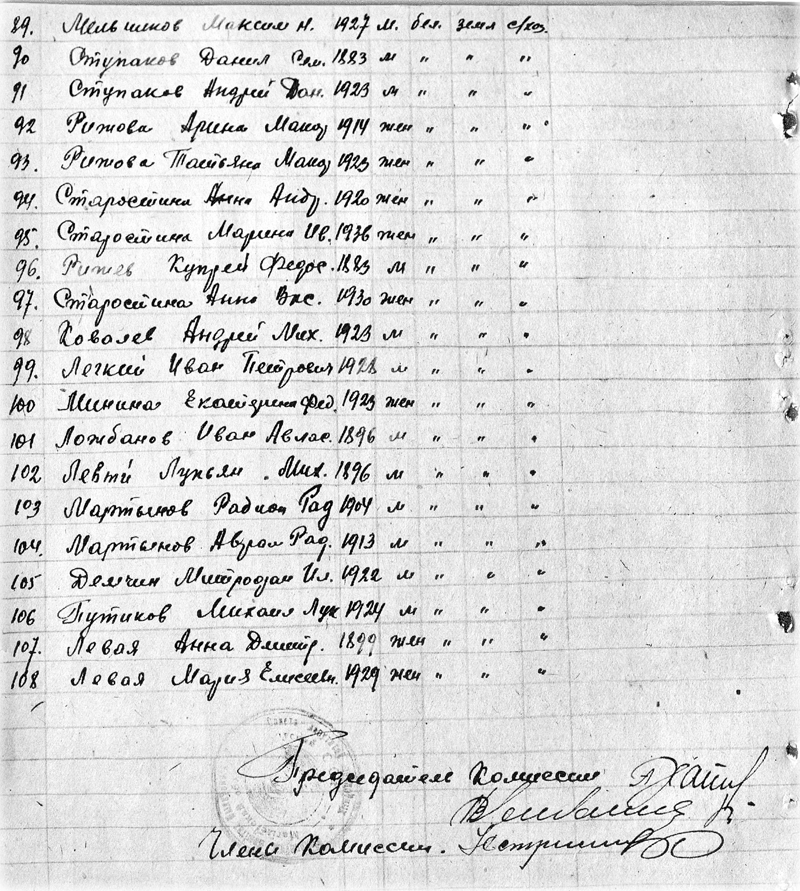 89. Мельников Максим И. 1927 м. бел. земл с/хоз.
90 Ступаков Данил Сем. 1883 м " " "
91 Ступаков Андрей Дан. 1923 м " " "
92 Рижова Арина Макар 1914 жен " " "
93. Рижова Татьяна Макар 1923 жен " " "
94. Старостина Анна Андр. 1920 жен " " "
95. Старостина Марина Ив. 1936 жен " " "
96. Рижев Купрей Федос. 1883 м " " "
97. Старостина Анна Вас. 1930 жен " " "
98 Ковалев Андрей Мих. 1923 м " " "
99. Легкий Иван Петрович 1928 м " " "
100 Минина Фед. 1923 жен " " "
101 Ложбанов Иван Авлас. 1896 м " " "
102 Лукьян Мих. 1896 м " " "
103 Мартынов Радион Рад 1904 м " " "
104. Мартынов Рад. 1913 м " " "
105 Демчин Ил. 1922 м " " "
106 Путиков Михаил Лук 1924 м " " "
107. Левая Анна Дмитр. 1899 жен " " "
108 Левая Мария Елисеевн. 1929 жен " " "
Председатель Комиссии
Члены Комиссии.